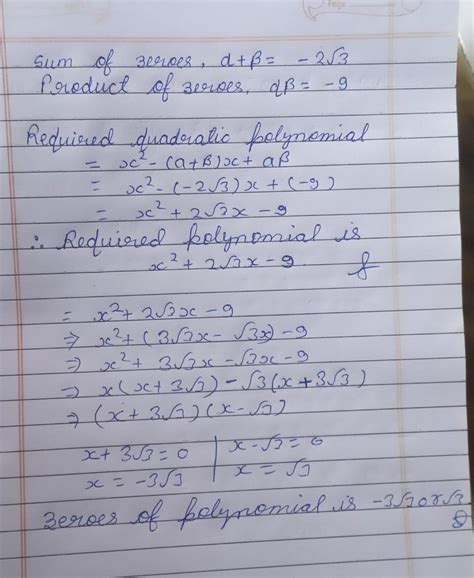 Sum of zeroes, α+β = -2√3
Product of zeroes, αβ = -9
Required quadratic polynomial
= x² - (α+β)x + αβ
= x² - (-2√3)x + (-9)
= x² + 2√3x - 9
∴ Required polynomial is
x² + 2√3x - 9
= x² + 2√3x - 9
⇒ x² + (3√3x - √3x) - 9
⇒ x² + 3√3x - √3x - 9
⇒ x(x + 3√3) - √3(x + 3√3)
⇒ (x + 3√3)(x - √3)
x + 3√3 = 0 | x - √3 = 0
x = -3√3 | x = √3
zeroes of polynomial is -3√3 or √3